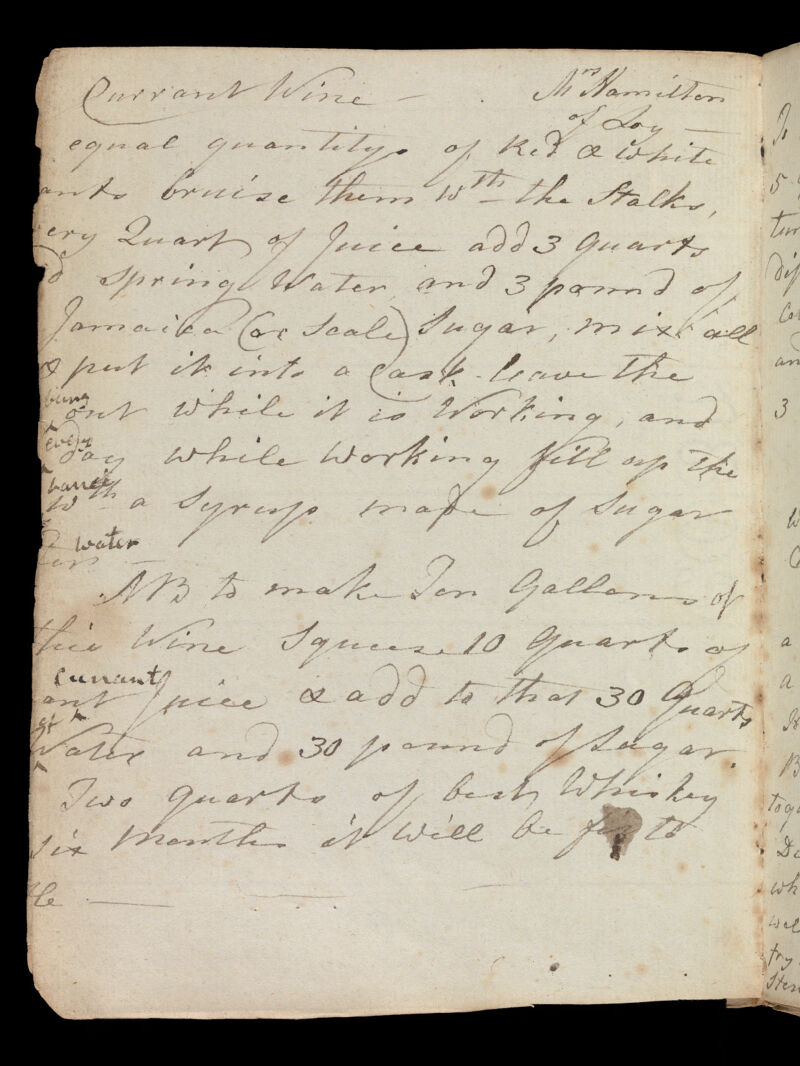 Currant Wine — Mrs Hamilton
of Loy —
equal quantitys of Red & white
ants bruise them wth the Stalks,
ery Quart of Juice add 3 Quarts
d Spring Water and 3 pound of
Jamaica (or Scale) Sugar, mix all
& put it into a Cask leave the
bung
out while it is Working, and
every
day while working fill up the
barrel
wth a Syrup made of Sugar
water
NB to make Ten Gallons of
this Wine Squeese 10 Quarts of
Currant
ant Juice & add to that 30 Quarts
Water and 30 pound of Sugar.
Two Quarts of best Whiskey
six Months it will be fit to
tle —